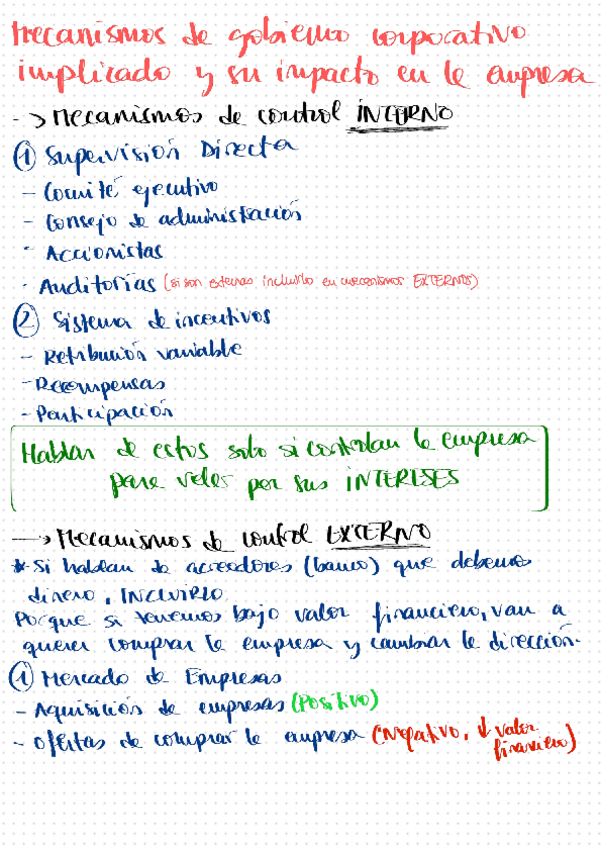 Mecanismos de gobierno corporativo
implicado y su impacto en le empresa
-> Mecanismos de control INTERNO
① Supervisión Directa
- Comité ejecutivo
- Consejo de administración
- Accionistas
- Auditorías (si son externas incluirlo en mecanismos EXTERNOS)
② Sistema de incentivos
- Retribución variable
- Recompensas
- Participación
Hablar de estos solo si controlan le empresa
para veler por sus INTERESES
-> Mecanismos de control EXTERNO
* Si hablan de acreedores (banco) que debemos
dinero, INCLUIRLO.
Porque si tenemos bajo valor financiero, van a
querer comprar le empresa y cambiar le dirección.
① Mercado de Empresas
- Aquisición de empresas (Positivo)
- Ofertas de comprar le empresa (Negativo, ↓ valor
financiero)